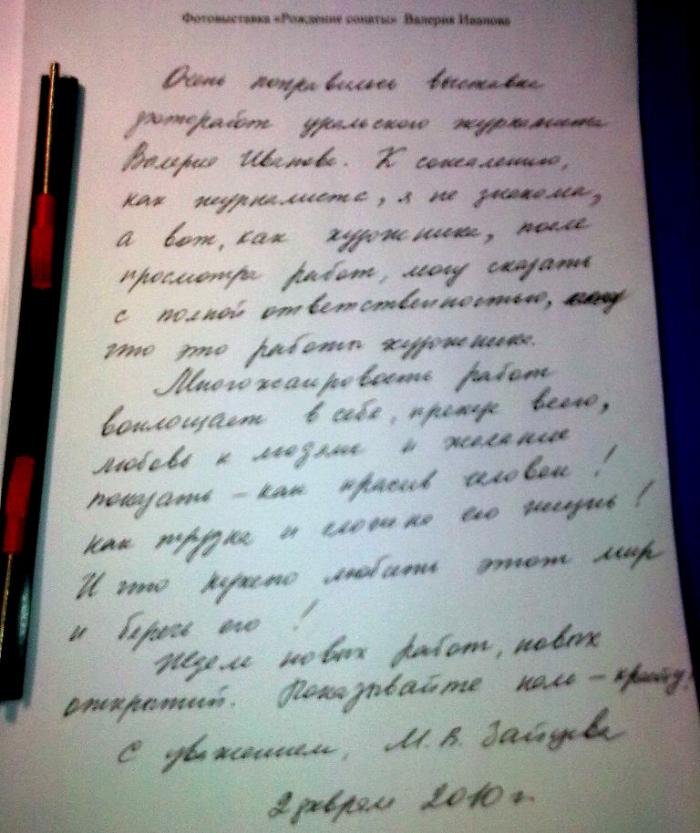 Фотовыставка «Рождение сонаты» Валерия Иванова
Очень понравилась выставка
фоторабот уральского журналиста
Валерия Иванова. К сожалению,
как журналиста, я не знакома,
а вот, как художника, после
просмотра работ, могу сказать
с полной ответственностью,
что это работы художника.
Многожанровость работ
воплощает в себе, прежде всего,
любовь к людям и желание
показать – как красив человек!
как трудна и сложна его жизнь!
И что нужно любить этот мир
и беречь его!
Ждем новых работ, новых
открытий. Показывайте нам – красоту!
С уважением, М. В. Зайцева
2 февраля 2010 г.